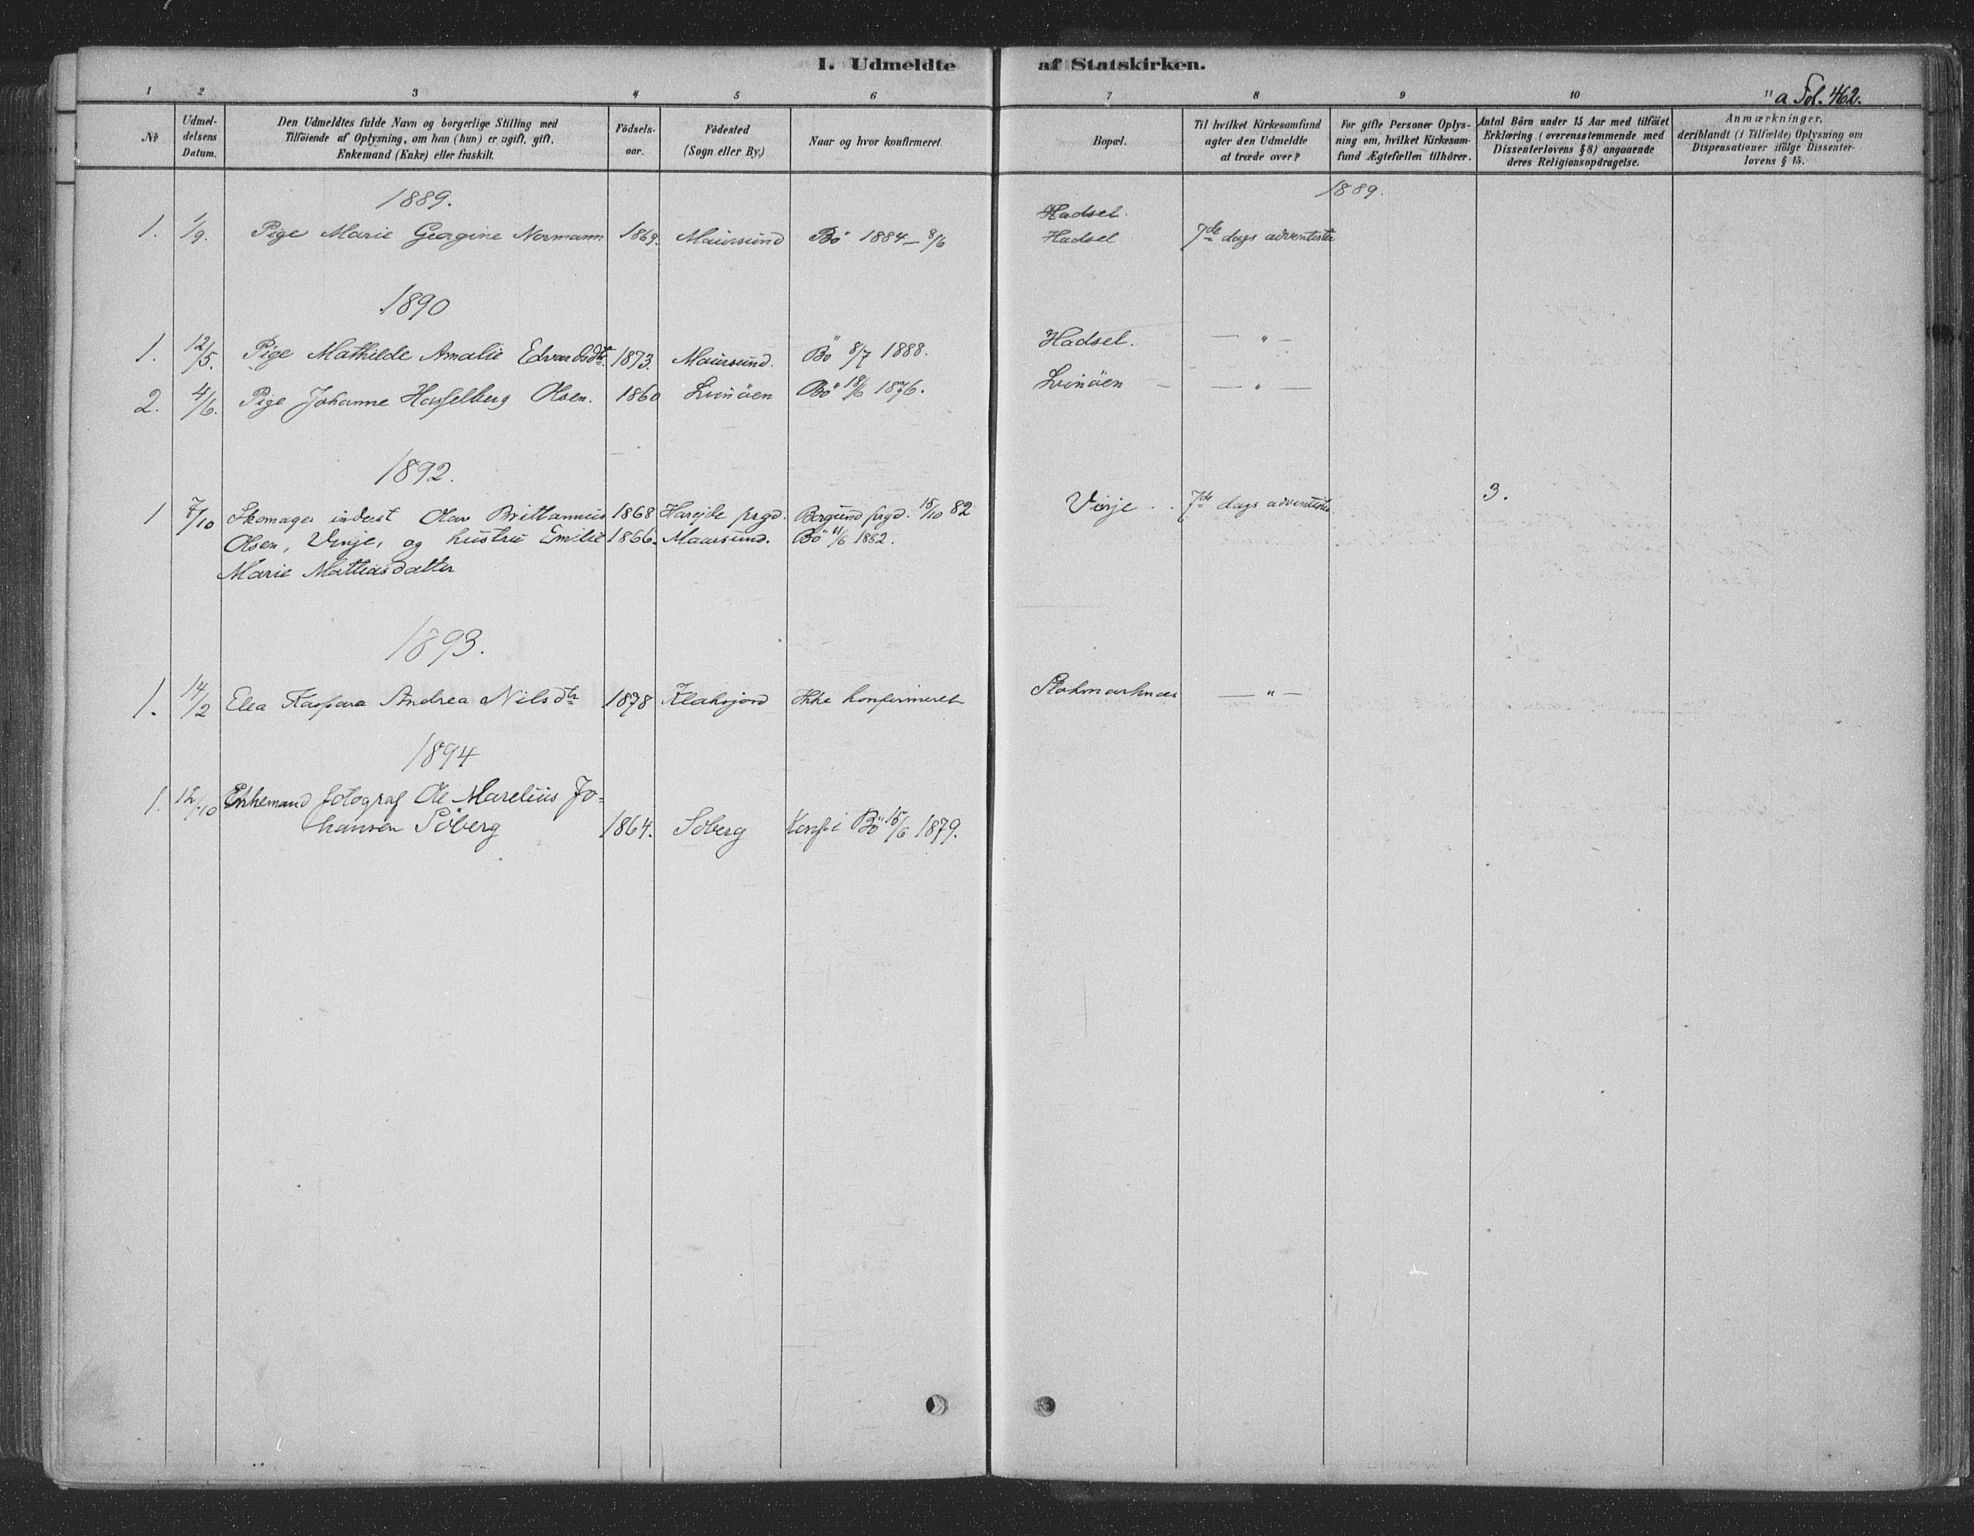 I. Udmeldte af Statskirken.
a Fol. 462.
1 2 3 4 5 6 7 8 9 10 11
No
Udmel-
delsens
Datum.
Den Udmeldtes fulde Navn og borgerlige Stilling med
Tilföiende af Oplysning, om han (hun) er ugift, gift,
Enkemand (Enke) eller fraskilt.
Födsels-
aar.
Födested
(Sogn eller By.)
Naar og hvor konfirmeret.
Bopæl.
Til hvilket Kirkesamfund
agter den Udmeldte
at træde over?
For gifte Personer Oplys-
ning om, hvilket Kirkesam-
fund Ægtefællen tilhörer.
Antal Börn under 15 Aar med tilföiet
Erklæring (overensstemmende med
Dissenterlovens § 8) angaaende
deres Religionsopdragelse.
Anmærkninger,
deriblandt (i Tilfælde) Oplysning om
Dispensationer ifölge Dissenter-
lovens § 15.
1889. 1889.
Hadsel.
1. 1/9. Pige Marie Georgine Normann 1869. Maursund Bö 1884 - 8/6 Hadsel 7de dags adventister
1890
1. 12/5. Pige Mathilde Amalie Edvardsdtr. 1873. Maursund. Bö 8/7 1888. Hadsel. — " —
2. 4/6. Pige Johanne Hasselberg Olsen. 1860 Svinöen Bö 18/6 1876. Svinöen — — " —
1892.
1 7/10 Skomager inderst Olav Brittannius 1868 Harejde prgd. Borgund prgd. 15/10 82 Vinje . . 7de dags adventister 3.
Olsen, Vinje, og hustru Emilie 1866. Maursund. Bö 11/6 1882.
Marie Mathiasdatter
1893.
1. 14/2 Elea Kaspara Andrea Nilsdtr 1878 Klaksjord Ikke konfirmeret Stokmarknes — " —
1894
1. 12/10 Enkemand fotograf Ole Marelius Jo-
hansen Söberg 1864. Söberg Konf. i Bö 15/6 1879.